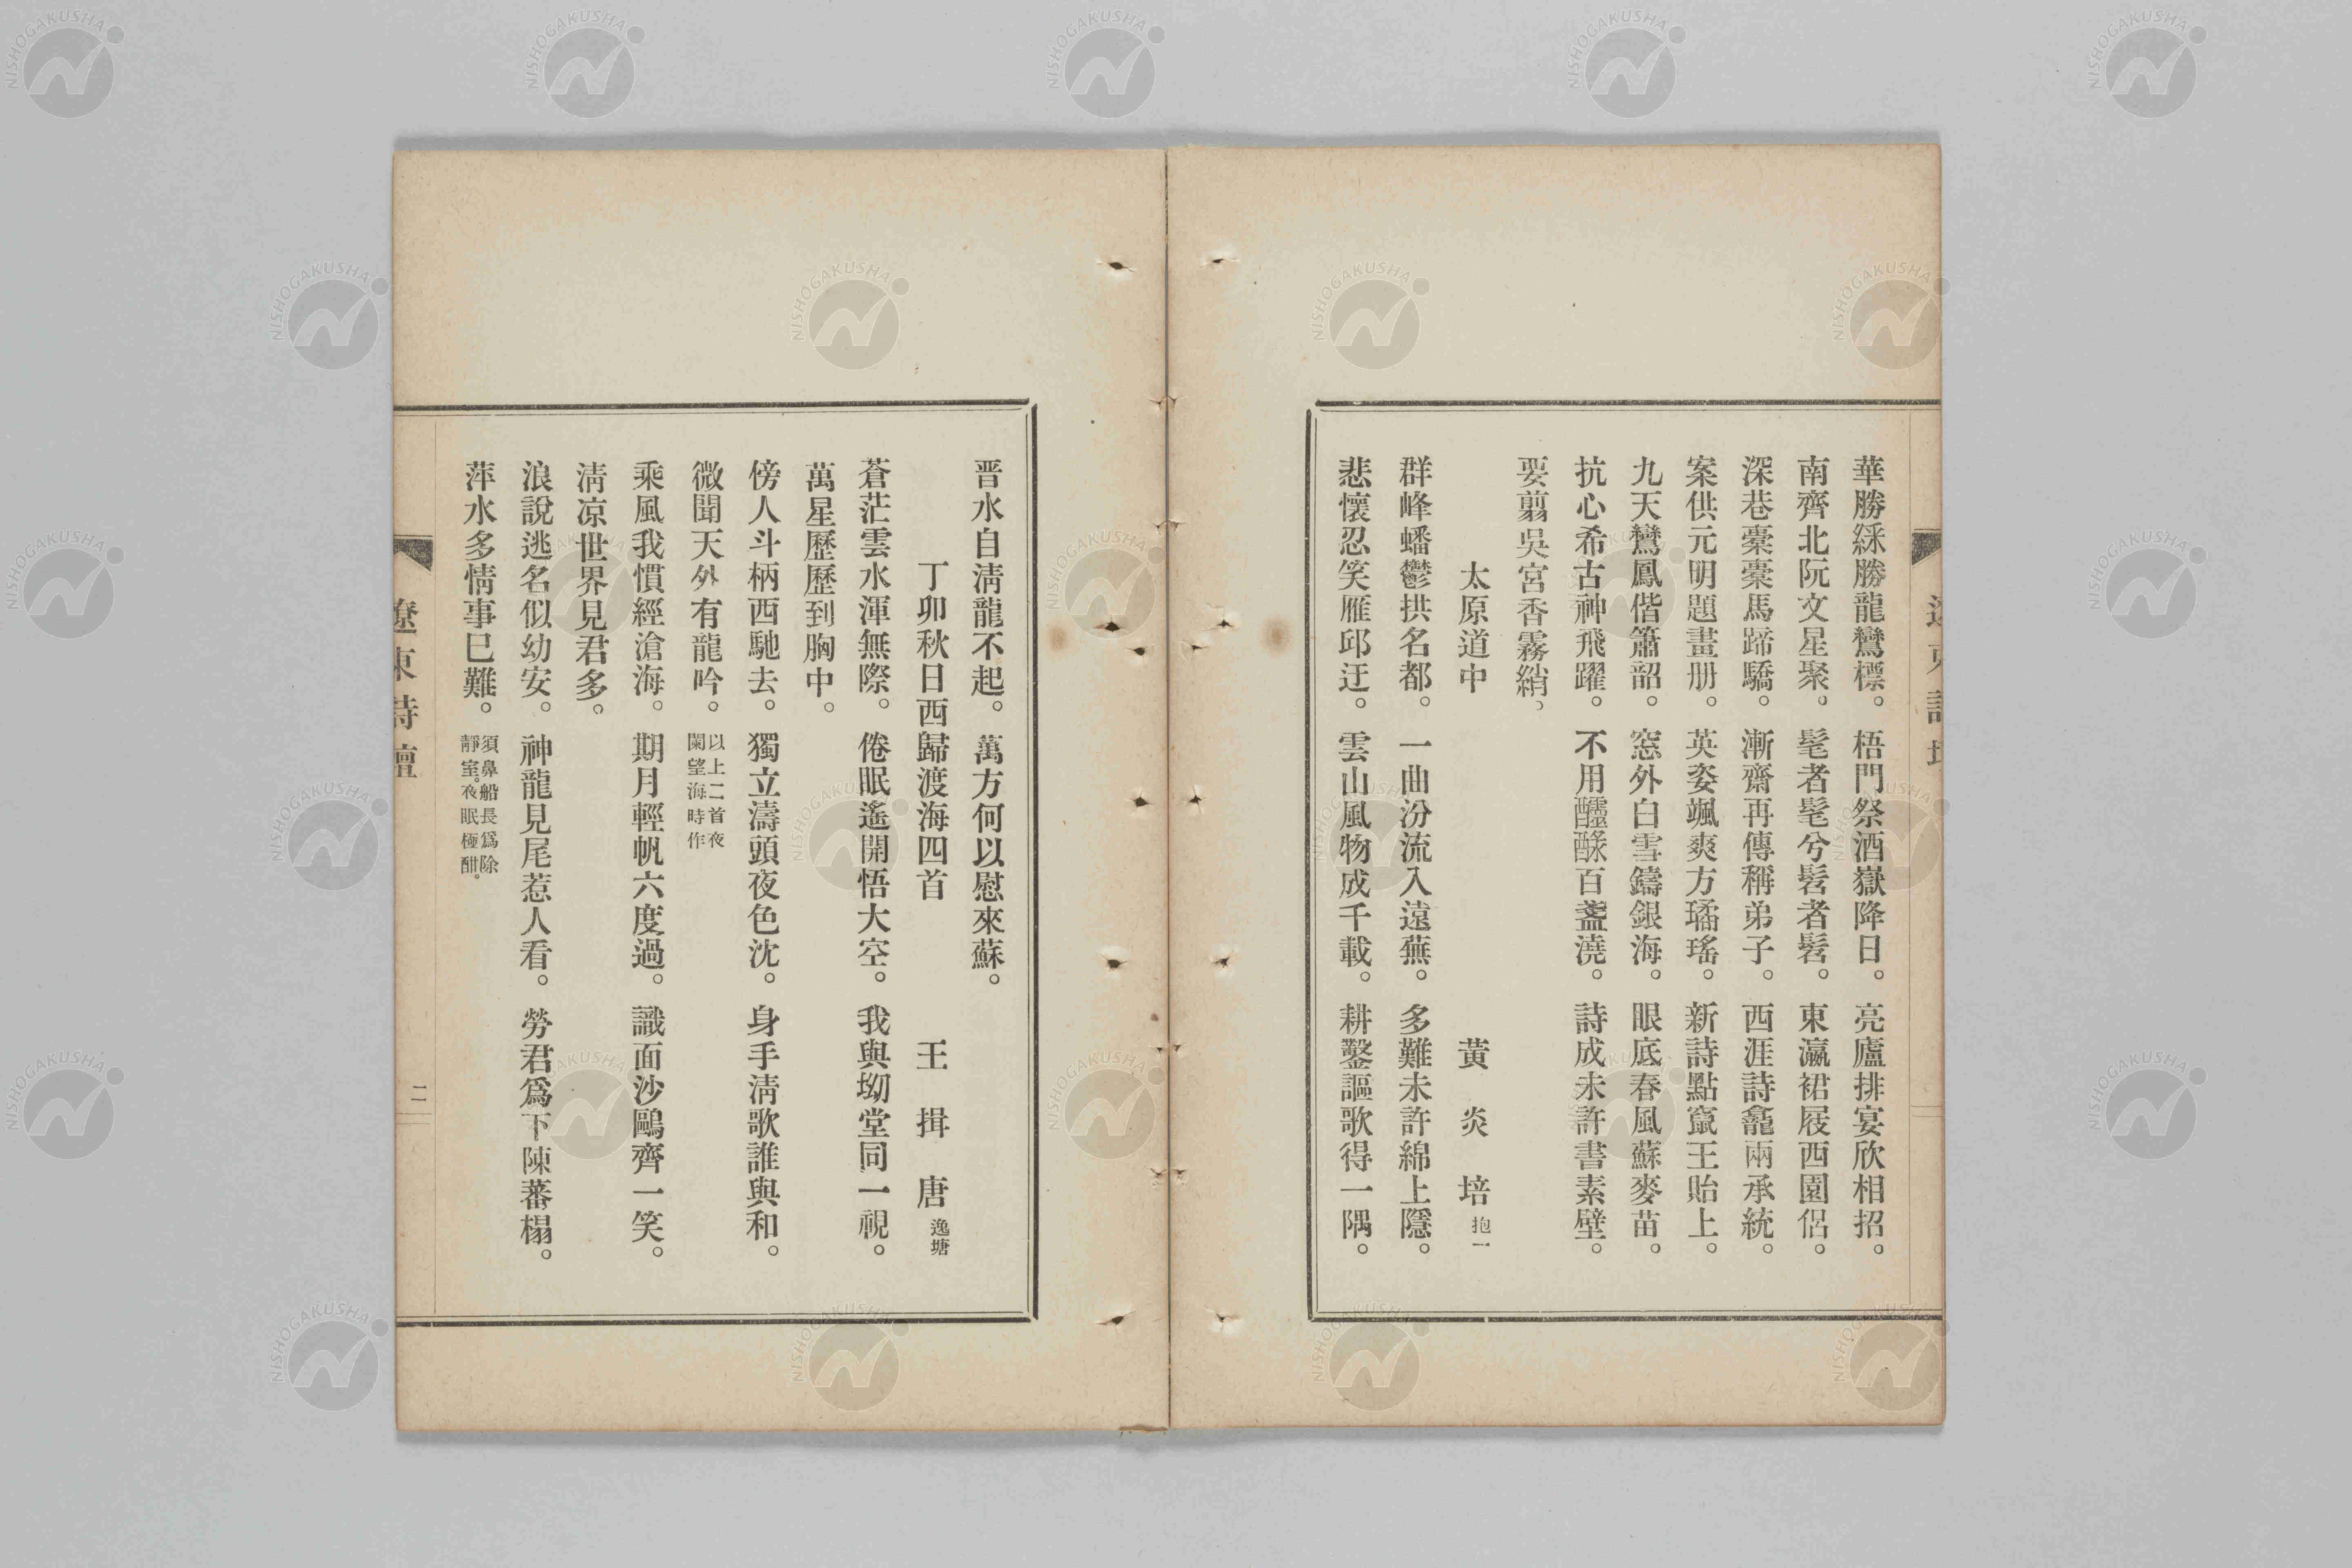 華勝綵勝龍鸞標。梧門祭酒嶽降日。亮廬排宴欣相招。
南齊北阮文星聚。髦者髦兮髫者髫。東瀛裙屐西園侶。
深巷橐橐馬蹄驕。漸齋再傳稱弟子。西涯詩龕兩承統。
案供元明題畫册。英姿颯爽方璚瑤。新詩點竄王貽上。
九天鸞鳳偕簫韶。窓外白雪鑄銀海。眼底春風蘇麥苗。
抗心希古神飛躍。不用醽醁百盞澆。詩成未許書素壁。
要翦吳宮香霧綃。
太原道中 黃炎培 抱一
群峰蟠鬱拱名都。一曲汾流入遠蕪。多難未許綿上隱。
悲懷忍笑雁邱迂。雲山風物成千載。耕鑿謳歌得一隅。
晋水自清龍不起。萬方何以慰來蘇。
丁卯秋日西歸渡海四首 王揖唐 逸塘
蒼茫雲水渾無際。倦眠遙開悟大空。我與坳堂同一視。
萬星歷歷到胸中。
傍人斗柄西馳去。獨立濤頭夜色沈。身手清歌誰與和。
微聞天外有龍吟。以上二首夜
闌望海時作
乘風我慣經滄海。期月輕帆六度過。識面沙鷗齊一笑。
清凉世界見君多。
浪說逃名似幼安。神龍見尾惹人看。勞君爲下陳蕃榻。
萍水多情事已難。須鼻船長爲除
靜室。夜眠極酣。
遼東詩壇
二
NISHOGAKUSHA